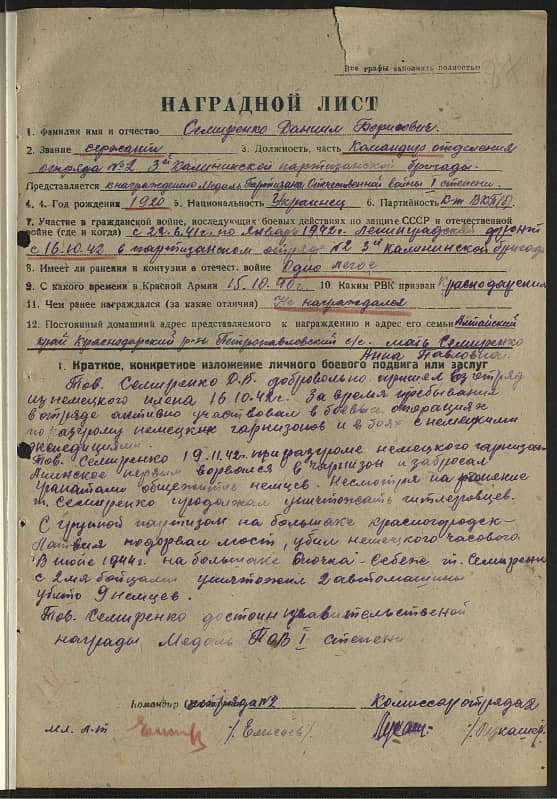 Все графы заполнять полностью
НАГРАДНОЙ ЛИСТ
1. Фамилия имя и отчество Семиренко Даниил Борисович.
2. Звание сержант 3. Должность, часть Командир отделения
отряда №2 3й Калининской партизанской бригады.
Представляется к награждению Медаль Партизана Отечественной войны I степени.
4. 4. Год рождения 1920 5. Национальность Украинец 6. Партийность К-т ВКП/б/
7. Участие в гражданской войне, последующих боевых действиях по защите СССР и отечественной
войне (где и когда) с 22.6.41г. по Январь 1942г. Ленинградский фронт
с 16.10.42 в партизанском отряде №2 3й Калининской бригады
8. Имеет ли ранения и контузии в отечест. войне Одно легое
9. С какого времени в Красной Армии 15.10.40г. 10. Каким РВК призван Краснодарским
11. Чем ранее награждался (за какие отличия) Не награждался
12. Постоянный домашний адрес представляемого к награждению и адрес его семьи Алтайский
край Краснодарский р-он Петропавловский с/с. мать Семиренко
Анна Павловна.
I. Краткое, конкретное изложение личного боевого подвига или заслуг
Тов. Семиренко Д.Б. добровольно пришел в отряд
из немецкого плена 16.10.42г. За время пребывания
в отряде активно участвовал в боевых операциях
по разгрому немецких гарнизонов и в боях с немецкими
экспедициями.
Тов. Семиренко 19.11.42г. при разгроме немецкого гарнизона
первым ворвался в гарнизон и забросал
гранатами общежитие немцев. Несмотря на ранение
т. Семиренко продолжал уничтожать гитлеровцев.
С группой партизан на большаке Красногородск-
Латвия подорвал мост, убил немецкого часового
В июне 1944г. на большаке Опочка-Себеж т. Семиренко
с 2мя бойцами уничтожил 2 автомашины
убито 9 немцев.
Тов. Семиренко достоин правительственной
награды Медаль ПОВ I степени
Командир отряда №2 Комиссар отряда 2
мл. л-т /Елисеев/